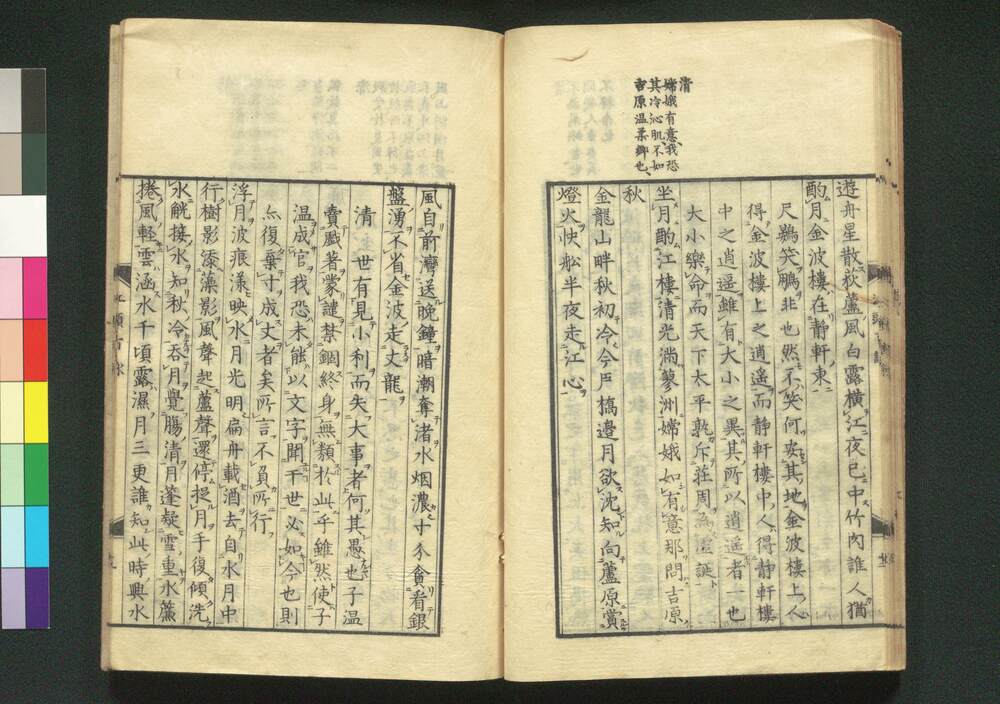 清
嫦娥有意我恐
其冷沁肌不如
吉原温柔郷也
遊舟星散荻蘆風白露横江夜已中竹内誰人猶
酌月金波樓在静軒東
尺鷃笑鵬非也然不笑何安其地金波樓上人
得金波樓上之逍遥而静軒樓中人得静軒樓
中之逍遥雖有大小之異其所以逍遥者一也
大小樂命而天下太平孰斥莊周為虚誕
坐月酌江樓清光満蓼洲嫦娥如有意那問吉原
秋
金龍山畔秋初冷今戸橋邉月欲沈知向蘆原賞
燈火快舩半夜走江心
風自前濟送晩鐘暗潮奪渚水烟濃寸夲貪看銀
盤湧不省金波走丈龍
清世有見小利而失大事者何其愚也子温
賣戯著蒙譴禁錮終身無類於此乎雖然使子
温成官我恐未能以文字聞于世必如今也則
亦復棄寸成丈者矣所言不負所行
浮月波痕漾映水月光明扁舟載酒去自水月中
行樹影漆藻影風聲起蘆聲還停捉月手復傾洗
水觥接水知秋冷呑月覺腸清月蓬疑雪重水蕉
捲風軽雲涵水千頃露濕月三更誰知此時興水